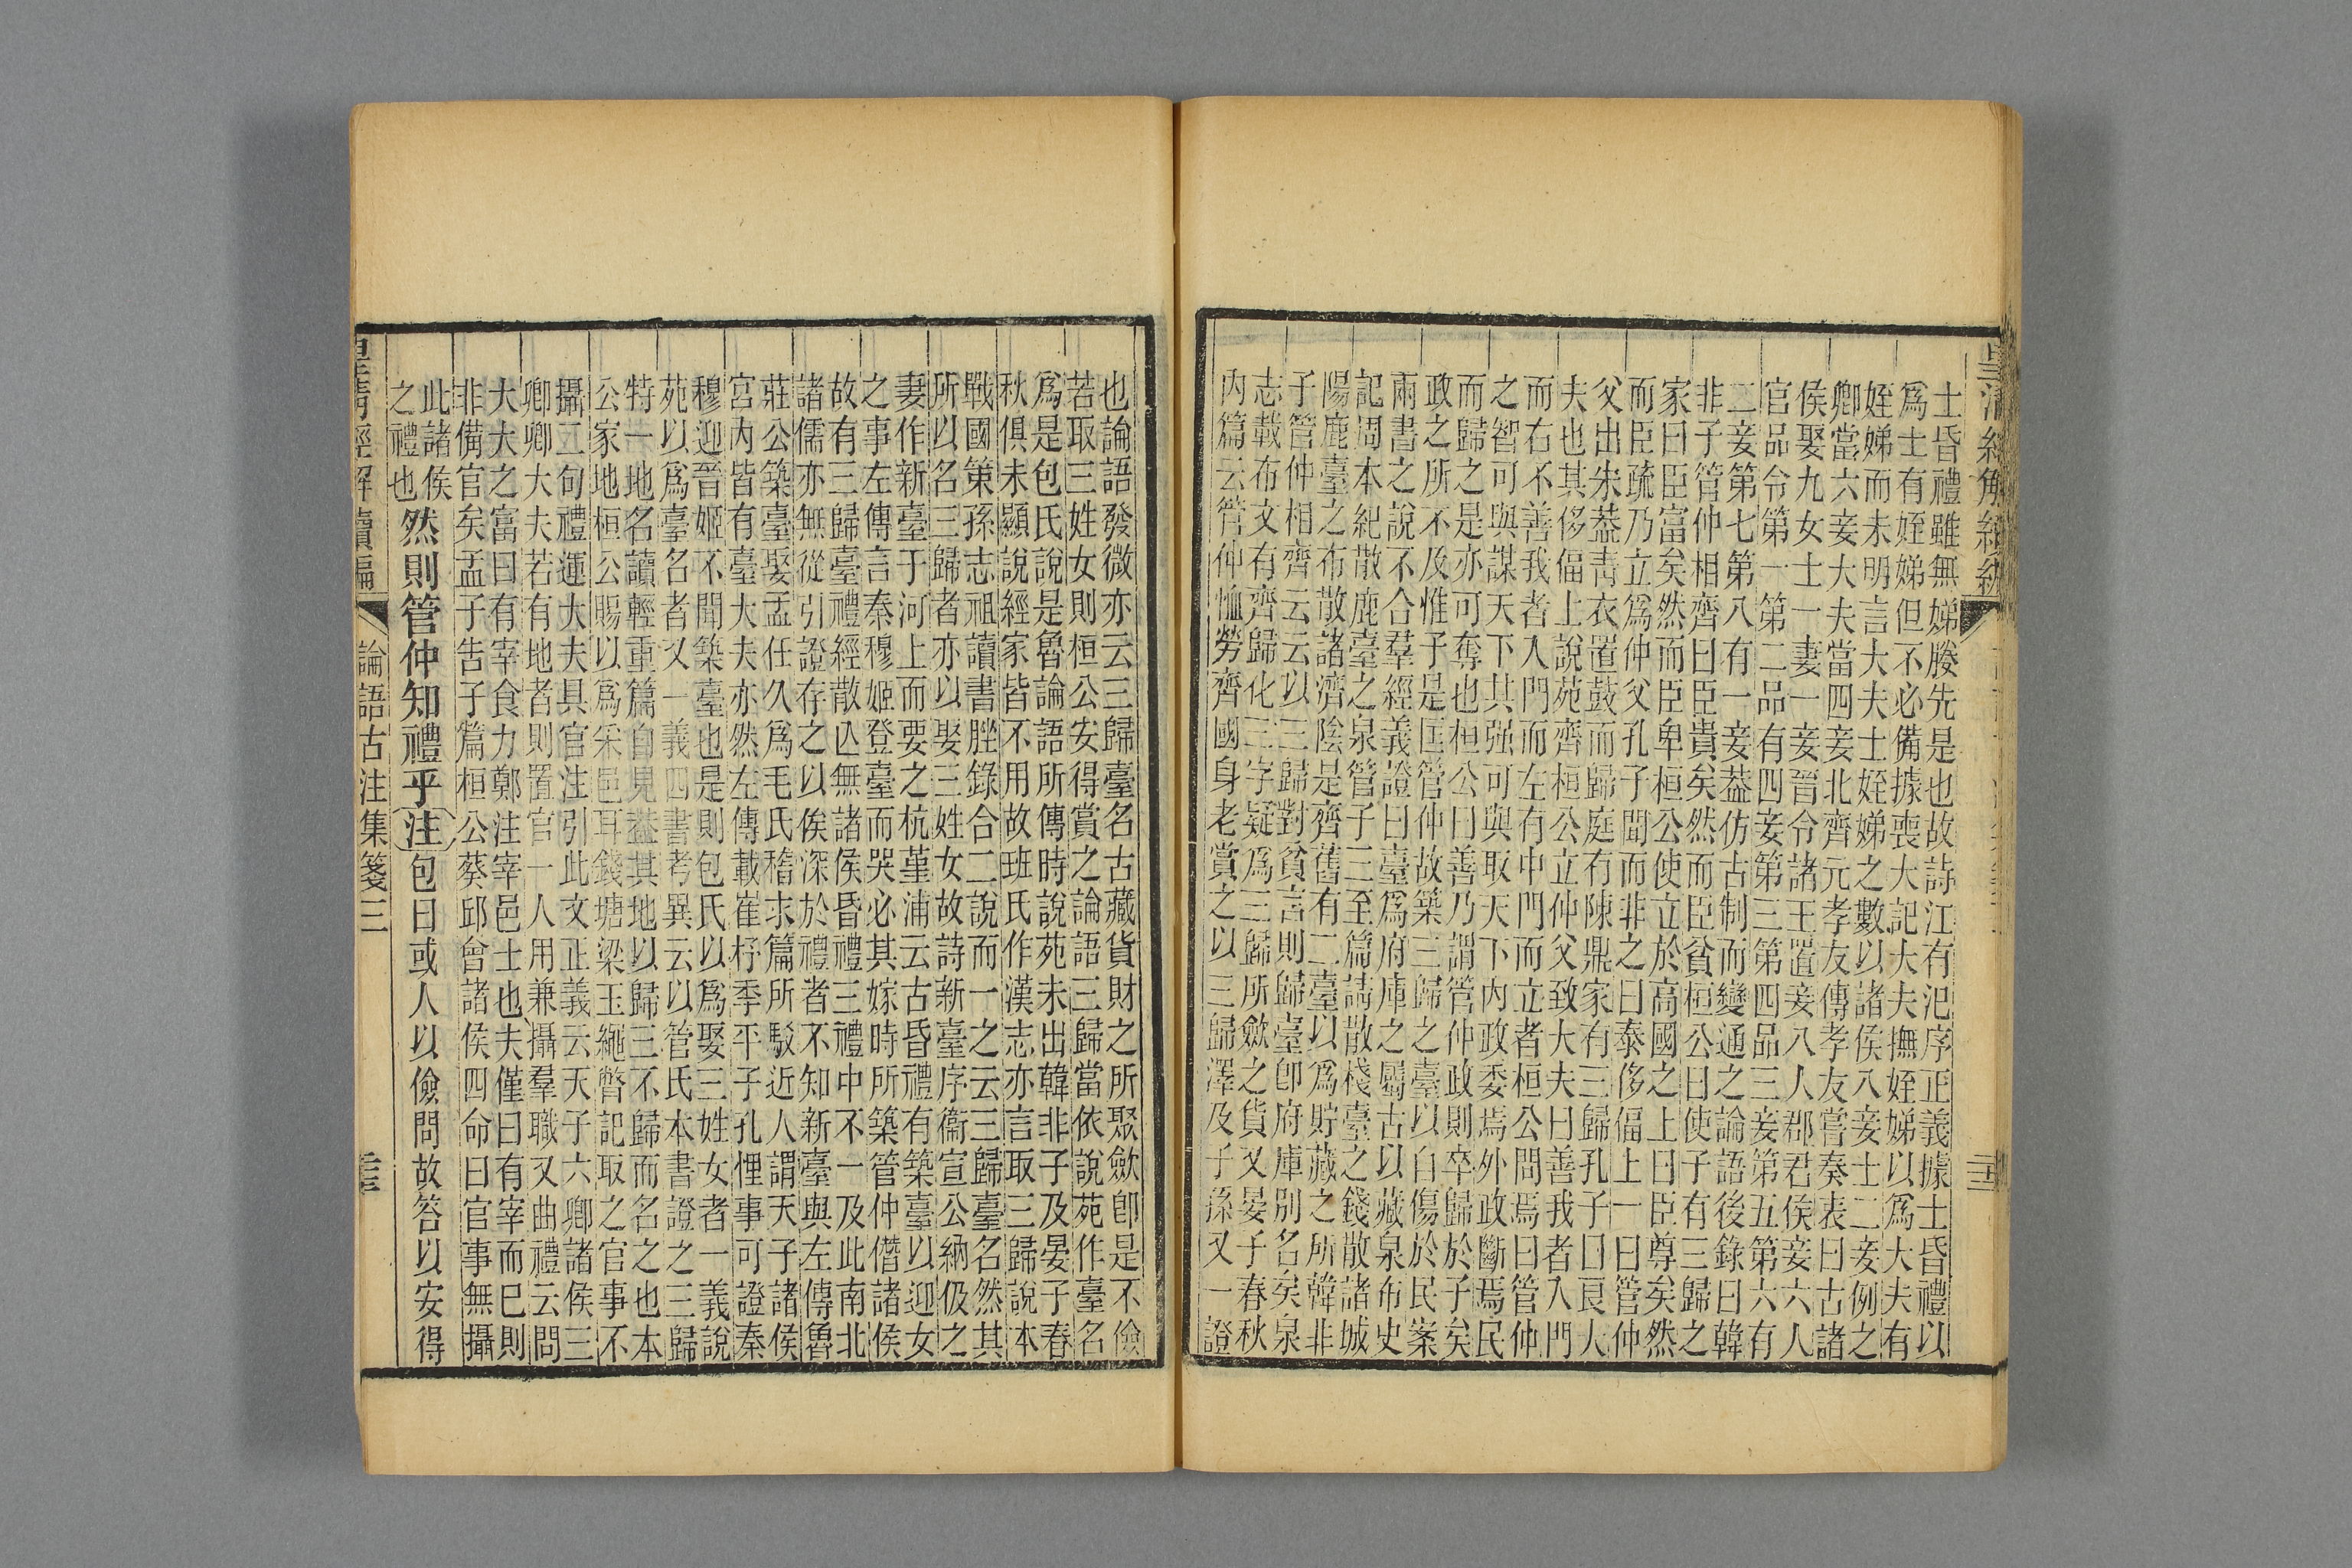 皇清經解續編
士昏禮雖無娣媵先是也故詩江有汜序正義據士昏禮以
爲士有姪娣但不必備據喪大記大夫撫姪娣以爲大夫有
姪娣而未明言大夫士姪娣之數以諸侯八妾士二妾例之
卿當六妾大夫當四妾北齊元孝友傳孝友嘗奏表曰古諸
侯娶九女士一妻一妾晉令諸王置妾八人郡君侯妾六人
官品令第一第二品有四妾第三第四品三妾第五第六有
二妾第七第八有一妾葢仿古制而變通之論語後錄曰韓
非子管仲相齊曰臣貴矣然而臣貧桓公曰使子有三歸之
家曰臣富矣然而臣卑桓公使立於高國之上曰臣尊矣然
而臣疏乃立爲仲父孔子聞而非之曰泰侈偪上一曰管仲
父出朱葢靑衣置鼓而歸庭有陳鼎家有三歸孔子曰良大
夫也其侈偪上說苑齊桓公立仲父致大夫曰善我者入門
而右不善我者入門而左有中門而立者桓公問焉曰管仲
之智可與謀天下其强可與取天下內政委焉外政斷焉民
而歸之是亦可奪也桓公曰善乃謂管仲政則卒歸於子矣
政之所不及惟子是匡管仲故築三歸之臺以自傷於民案
兩書之說不合羣經義證曰臺爲府庫之屬古以藏泉布史
記周本紀散鹿臺之泉管子三至篇請散棧臺之錢散諸城
陽鹿臺之布散諸濟陰是齊舊有二臺以爲貯藏之所韓非
子管仲相齊云云以三歸對貧言則歸臺卽府庫別名矣泉
志載布文有齊歸化三字疑爲三歸所斂之貨又晏子春秋
內篇云管仲恤勞齊國身老賞之以三歸澤及子孫又一證
也論語發微亦云三歸臺名古藏貨財之所聚斂卽是不儉
若取三姓女則桓公安得賞之論語三歸當依說苑作臺名
爲是包氏說是魯論語所傳時說苑未出韓非子及晏子春
秋俱未顯說經家皆不用故班氏作漢志亦言取三歸說本
戰國策孫志祖讀書脞錄合二說而一之云三歸臺名然其
所以名三歸者亦以娶三姓女故詩新臺序衞宣公納伋之
妻作新臺于河上而要之杭堇浦云古昏禮有築臺以迎女
之事左傳言秦穆姬登臺而哭必其嫁時所築管仲僭諸侯
故有三歸臺禮經散亾無諸侯昏禮三禮中不一及此南北
諸儒亦無從引證存之以俟深於禮者不知新臺與左傳魯
莊公築臺娶孟任久爲毛氏稽求篇所駁近人謂天子諸侯
宮內皆有臺大夫亦然左傳載崔杼季平子孔悝事可證秦
穆迎晉姬不聞築臺也是則包氏以爲娶三姓女者一義說
苑以爲臺名者又一義四書考異云以管氏本書證之三歸
特一地名讀輕重篇自見葢其地以歸三不歸而名之也本
公家地桓公賜以爲采邑耳錢塘梁玉繩瞥記取之官事不
攝二句禮運大夫具官注引此文正義云天子六卿諸侯三
卿卿大夫若有地者則置官一人用兼攝羣職又曲禮云問
大夫之富曰有宰食力鄭注宰邑士也夫僅曰有宰而已則
非備官矣孟子告子篇桓公葵邱會諸侯四命曰官事無攝
此諸侯
之禮也
然則管仲知禮乎注包曰或人以儉問故答以安得
皇清經解續編
論語古注集箋三